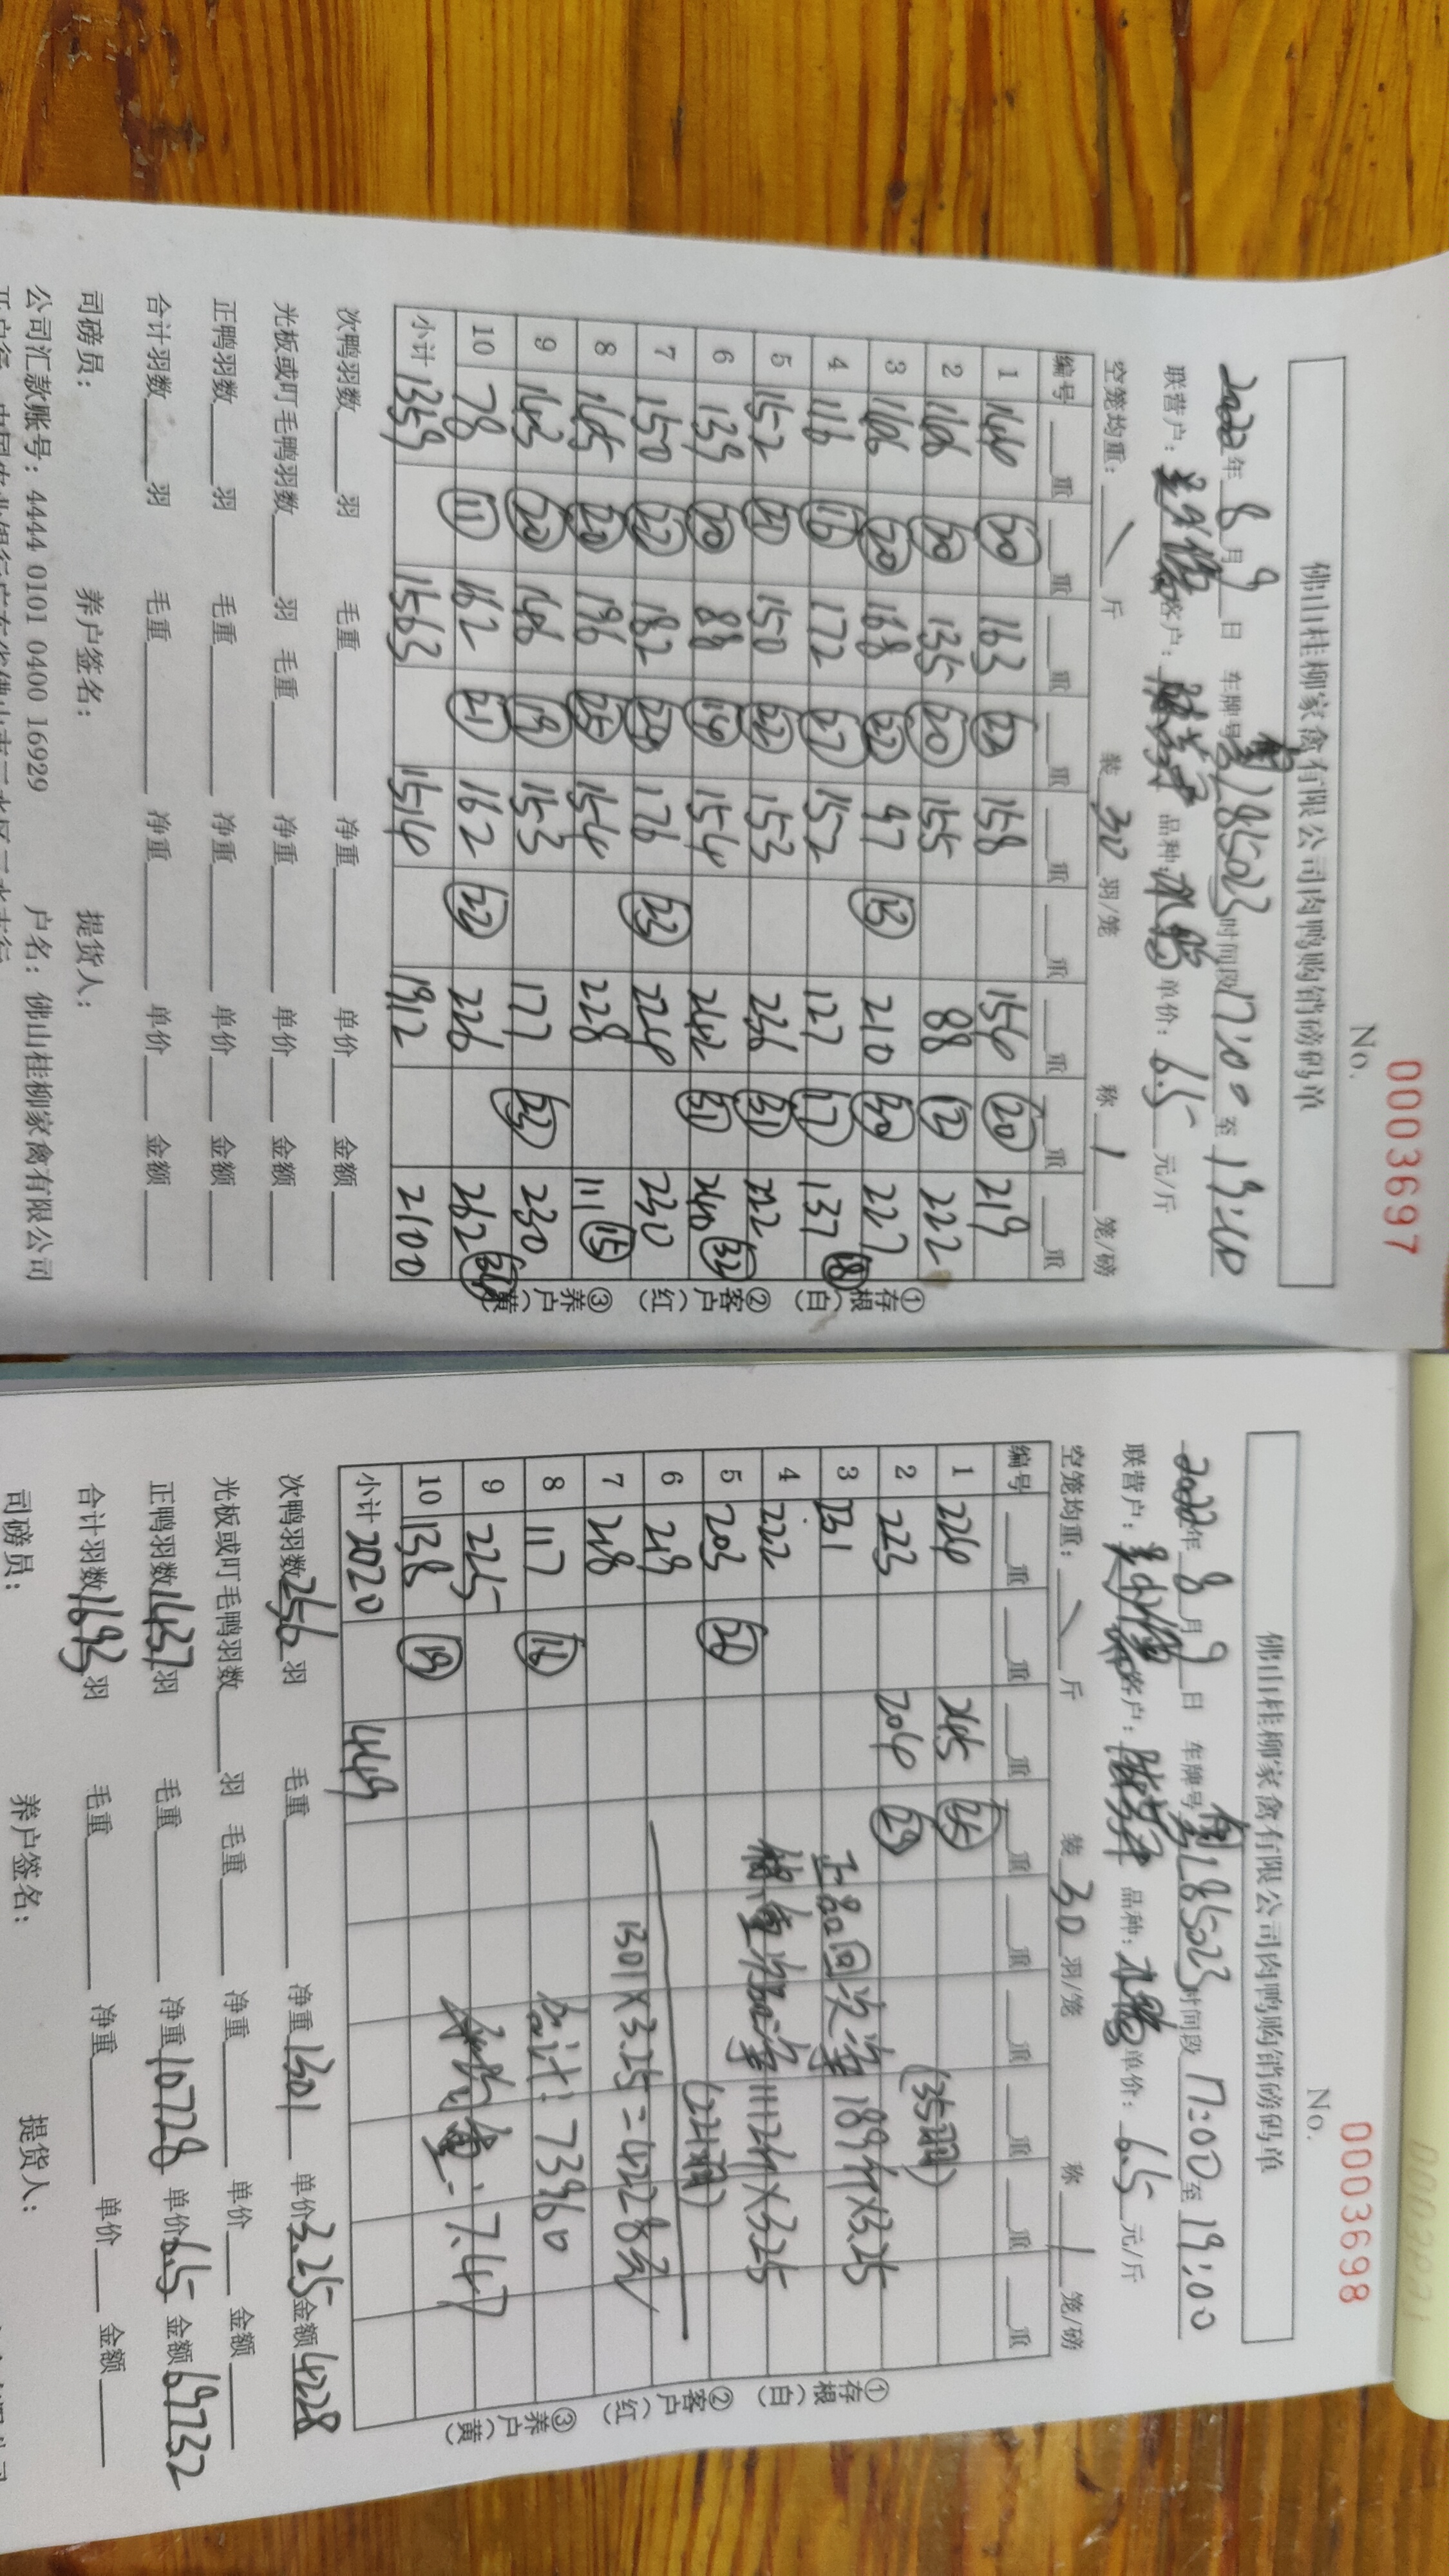 0003697
No.
佛山桂柳家禽有限公司肉鸭购销磅码单
2022年8月9日 车牌号 L85023 时间段17:00至19:00
联营户： 客户： 品种：水鸭 单价：6.5元/斤
空笼均重：\斤 装30羽/笼 称1笼/磅
编号 重 重 重 重 重 重 重 重 重
1 144 20 163 22 158 154 20 219
2 146 20 135 20 155 88 12 222
3 146 20 168 22 97 13 210 30 227
4 116 16 172 27 152 127 17 137 18
5 152 21 150 22 153 236 31 222
6 139 20 88 14 154 242 31 240 32
7 150 22 182 24 176 23 224 230
8 145 20 196 25 154 228 111 15
9 143 20 146 19 153 177 230
10 78 11 162 21 162 22 226 262
小计 1359 1563 1514 1912 2100
①存根(白) ②客户(红) ③养户(黄)
次鸭羽数 羽 毛重 净重 单价 金额
光板或叮毛鸭羽数 羽 毛重 净重 单价 金额
正鸭羽数 羽 毛重 净重 单价 金额
合计羽数 羽 毛重 净重 单价 金额
司磅员： 养户签名： 提货人：
公司汇款账号：4444 0101 0400 16929 户名：佛山桂柳家禽有限公司
0003698
No.
佛山桂柳家禽有限公司肉鸭购销磅码单
2022年8月9日 车牌号 L85023 时间段17:00至19:00
联营户： 客户： 品种：水鸭 单价：6.5元/斤
空笼均重：\斤 装30羽/笼 称1笼/磅
编号 重 重 重 重 重 重 重 重 重
1 224 245
2 223 204 29 (35羽)
3 231 正品回次单 189斤×3.25
4 222 1112斤×3.25
5 203 (221羽)
6 219
7 218 1301×3.25=4228元
8 117 16 合计：73960
9 225 均重：7.47
10 138 19
小计 2020 449
①存根(白) ②客户(红) ③养户(黄)
次鸭羽数256羽 毛重 净重1301 单价3.25 金额4228
光板或叮毛鸭羽数 羽 毛重 净重 单价 金额
正鸭羽数1437羽 毛重 净重10728 单价6.5 金额69732
合计羽数1693羽 毛重 净重 单价 金额
司磅员： 养户签名： 提货人：